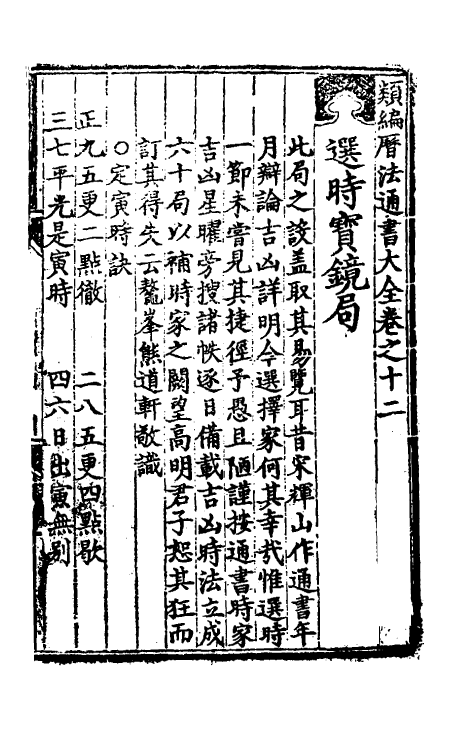 類編曆法通書大全卷之十二
選時寶鏡局
此局之設盖取其易覽耳昔宋輝山作通書年
月辯論吉凶詳明今選擇家何其幸哉惟選時
一節未嘗見其捷徑予愚且陋謹按通書時家
吉凶星曜旁搜諸帙逐日備載吉凶時法立成
六十局以補時家之闕望高明君子恕其狂而
訂其得失云鰲峯熊道軒敬識
○定寅時訣
正九五更二點徹 二八五更四點歇
三七平光是寅時 四六日出寅無別